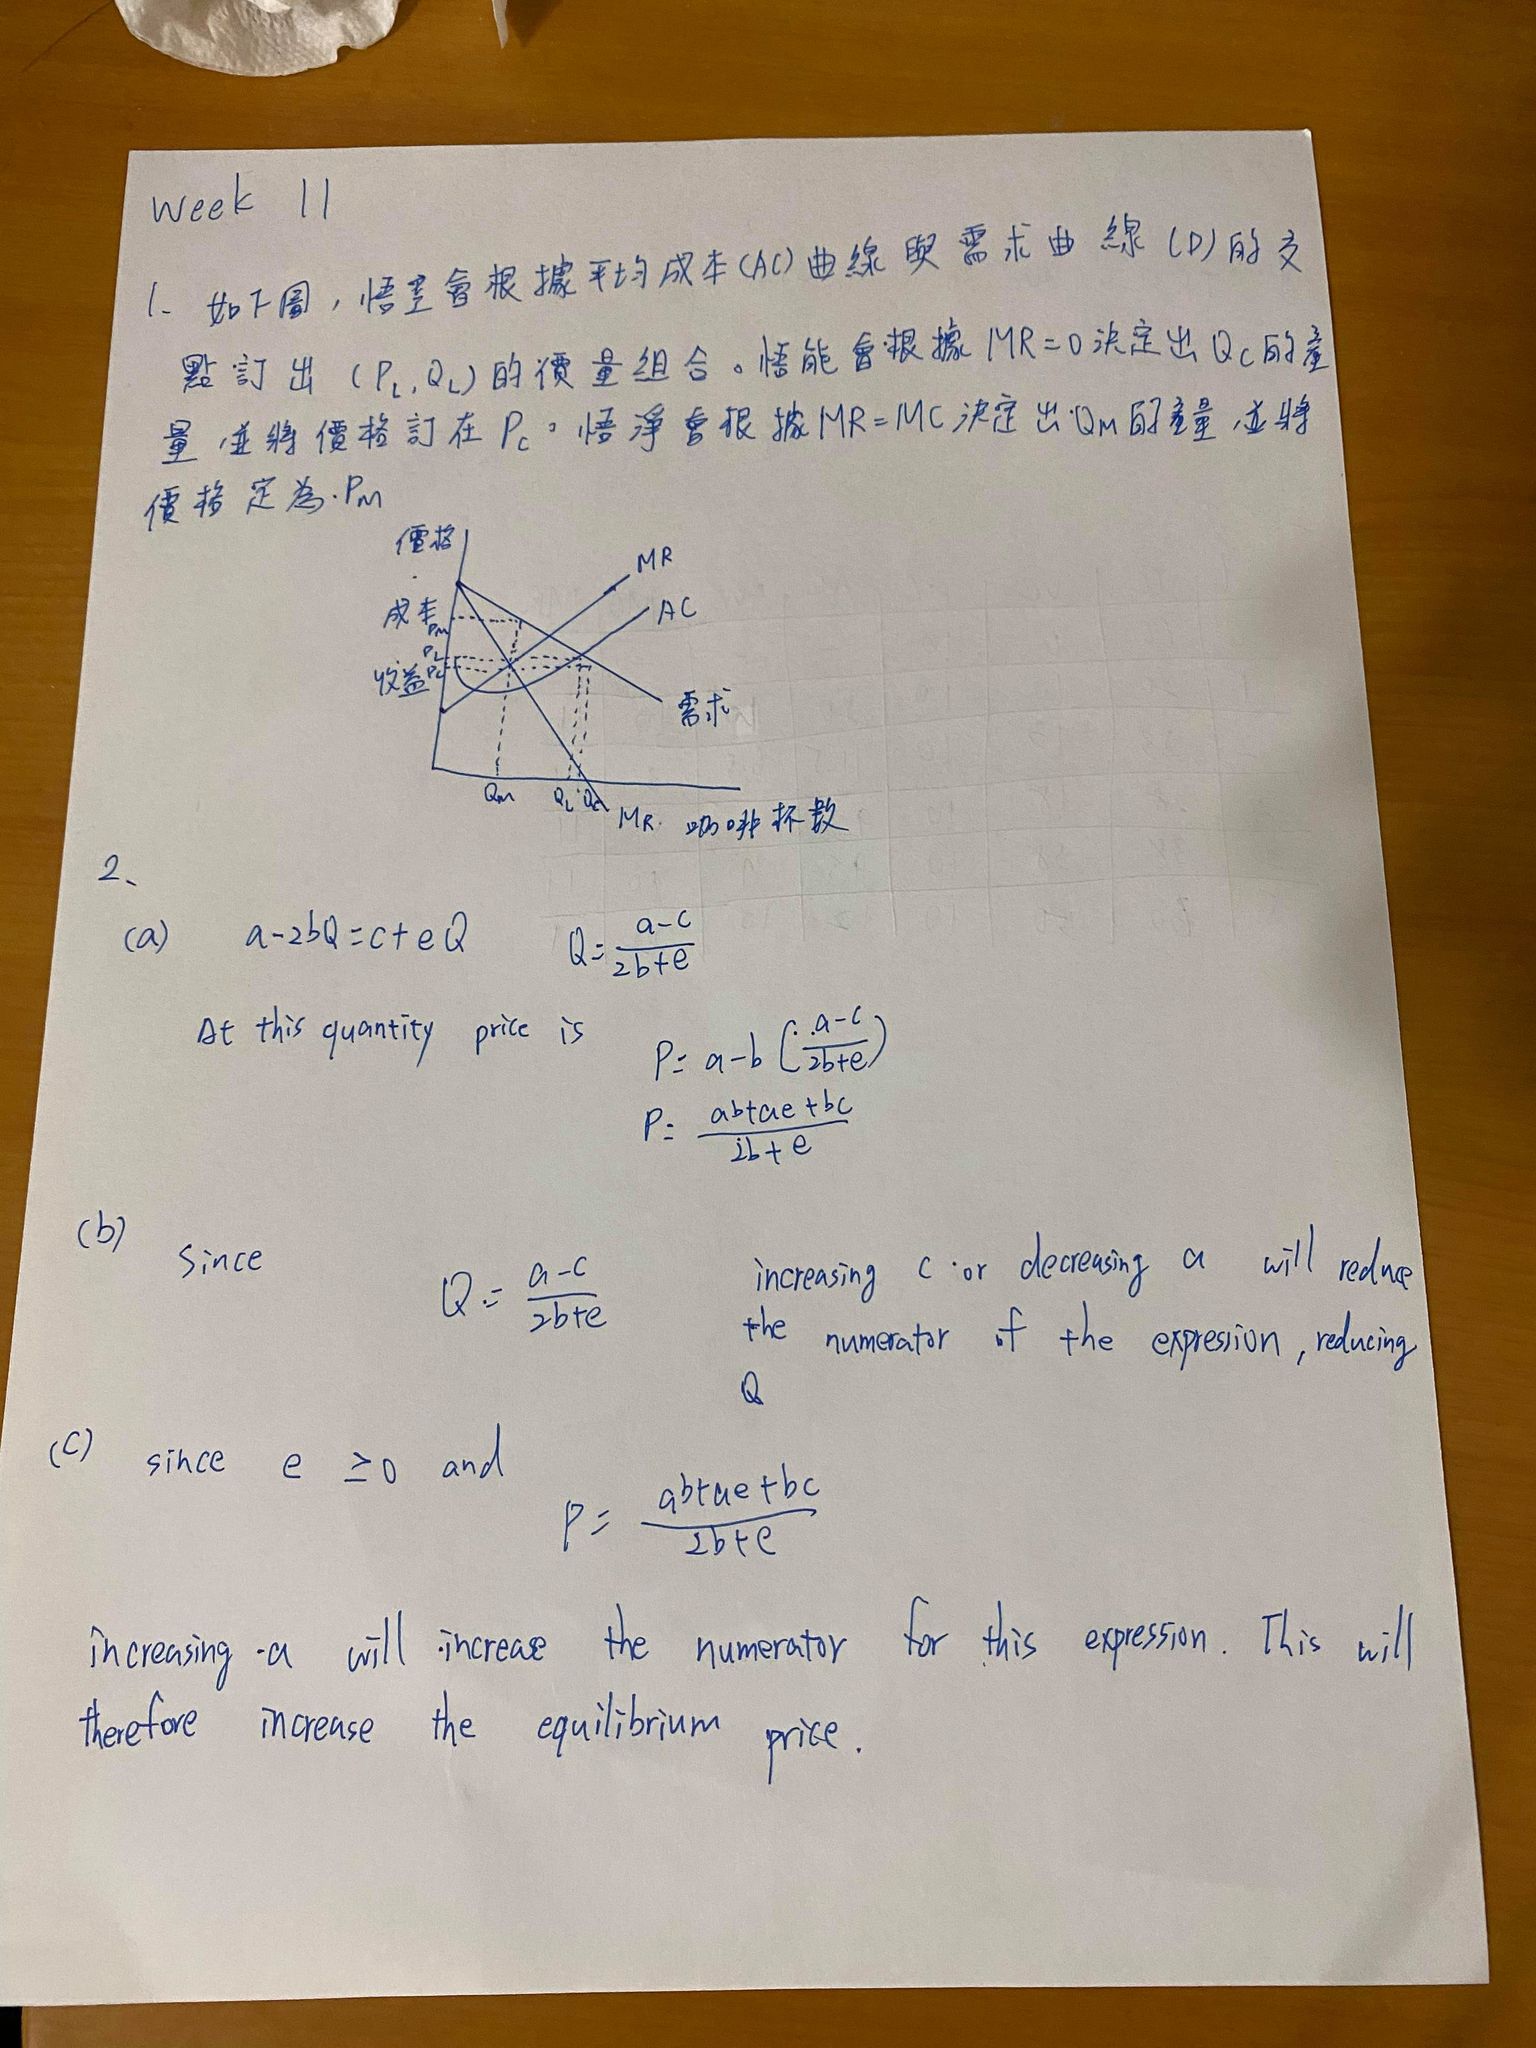 Week 11
1. 如下圖，悟空會根據平均成本(AC)曲線與需求曲線(D)的交
點訂出(PL,QL)的價量組合。悟能會根據MR=0決定出QC的產
量,並將價格訂在PC。悟淨會根據MR=MC決定出QM的產量,並將
價格定為.PM
價格
MR
成本
AC
PM
PL
PC
收益
需求
QM
QL
QC
MR.
咖啡杯數
2、
(a) a-2bQ=c+eQ Q=(a-c)/(2b+e)
At this quantity price is P=a-b((a-c)/(2b+e))
P=(ab+ae+bc)/(2b+e)
(b) Since Q=(a-c)/(2b+e) increasing c or decreasing a will reduce
the numerator of the expression, reducing
Q
(c) since e ≥0 and
P=(ab+ae+bc)/(2b+e)
increasing a will increase the numerator for this expression. This will
therefore increase the equilibrium price.